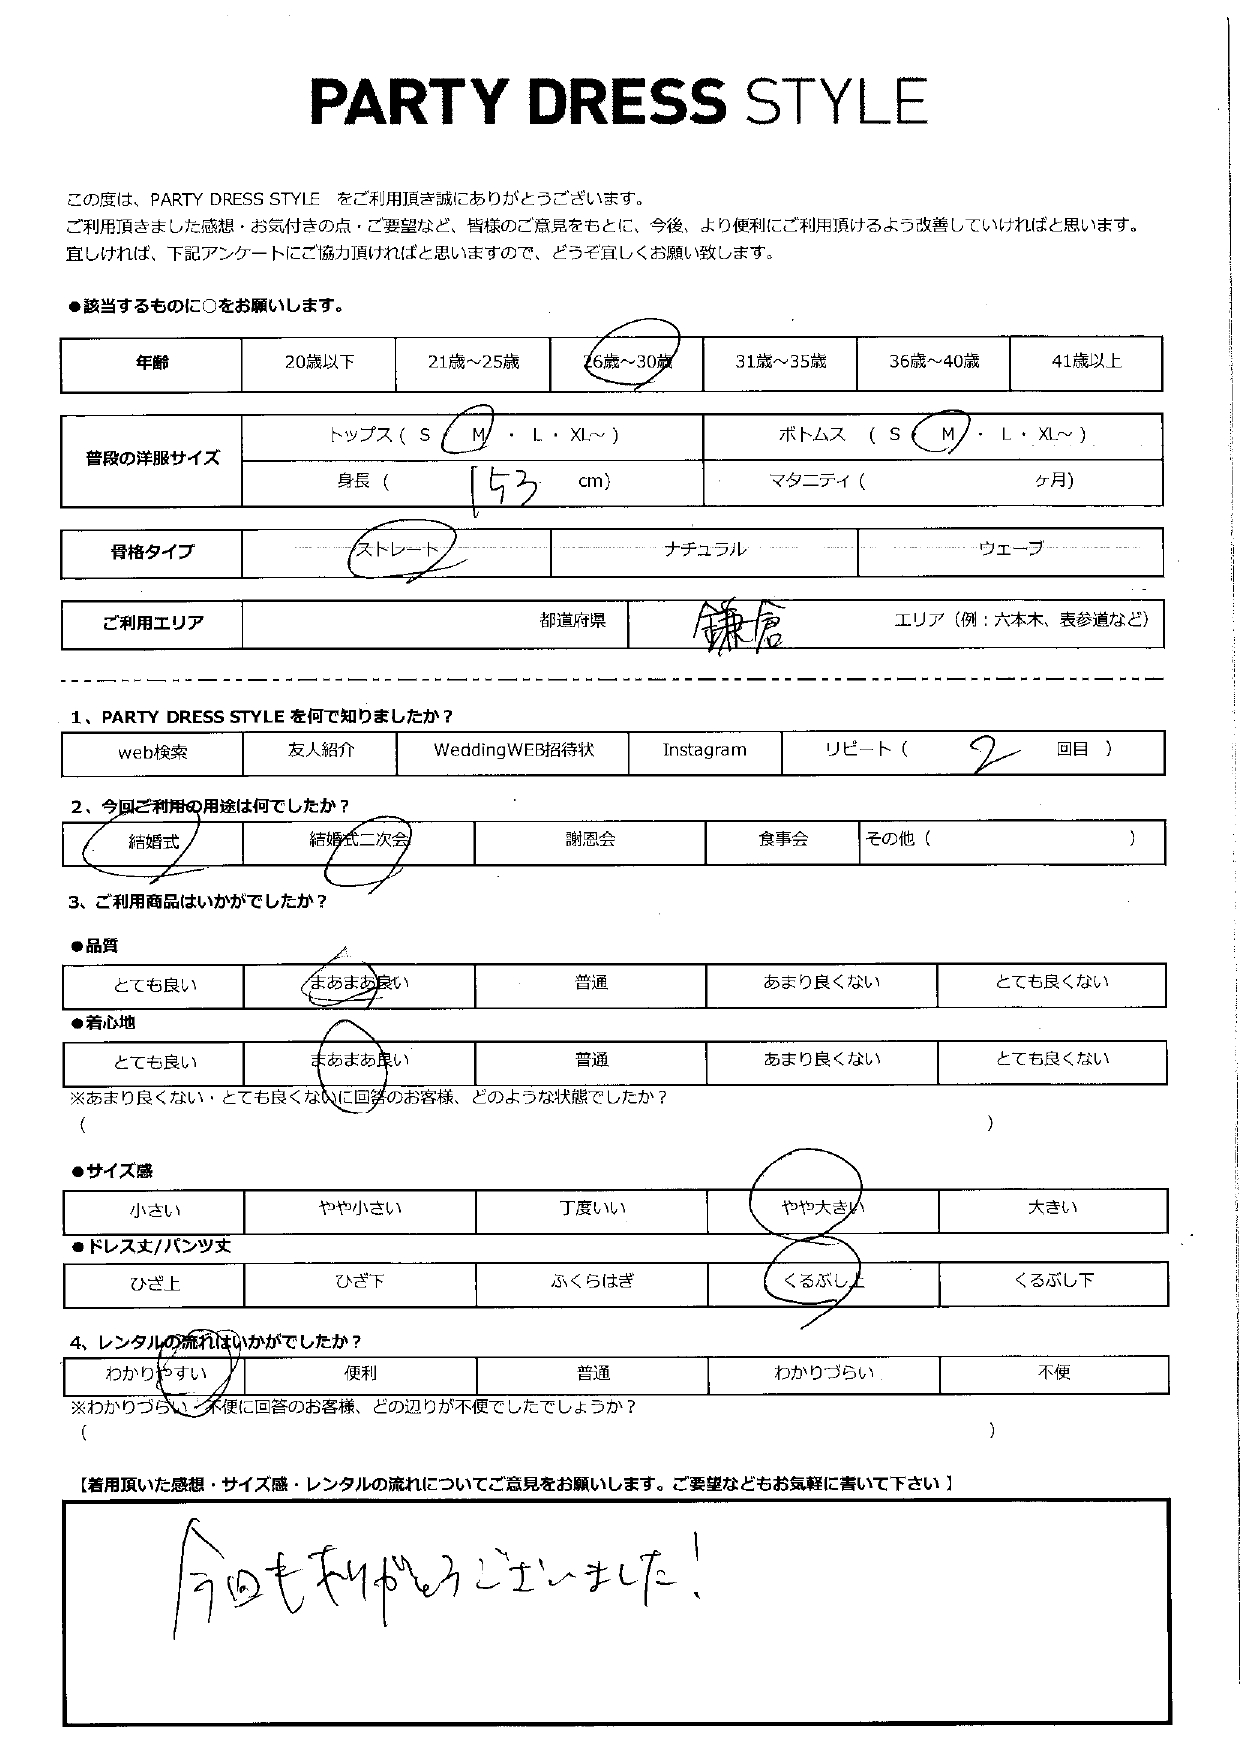 PARTY DRESS STYLE
この度は、PARTY DRESS STYLE をご利用頂き誠にありがとうございます。
ご利用頂きました感想・お気付きの点・ご要望など、皆様のご意見をもとに、今後、より便利にご利用頂けるよう改善していければと思います。
宜しければ、下記アンケートにご協力頂ければと思いますので、どうぞ宜しくお願い致します。
●該当するものに○をお願いします。
年齢 20歳以下 21歳～25歳 26歳～30歳 31歳～35歳 36歳～40歳 41歳以上
普段の洋服サイズ トップス ( S ・ M ・ L ・ XL～ ) ボトムス ( S ・ M ・ L ・ XL～ )
身長 ( 153 cm) マタニティ ( ヶ月)
骨格タイプ ストレート ナチュラル ウェーブ
ご利用エリア 都道府県 鎌倉 エリア（例：六本木、表参道など）
1、PARTY DRESS STYLE を何で知りましたか？
web検索 友人紹介 WeddingWEB招待状 Instagram リピート ( 2 回目 )
2、今回ご利用の用途は何でしたか？
結婚式 結婚式二次会 謝恩会 食事会 その他 ( )
3、ご利用商品はいかがでしたか？
●品質
とても良い まあまあ良い 普通 あまり良くない とても良くない
●着心地
とても良い まあまあ良い 普通 あまり良くない とても良くない
※あまり良くない・とても良くないに回答のお客様、どのような状態でしたか？
( )
●サイズ感
小さい やや小さい 丁度いい やや大きい 大きい
●ドレス丈/パンツ丈
ひざ上 ひざ下 ふくらはぎ くるぶし上 くるぶし下
4、レンタルの流れはいかがでしたか？
わかりやすい 便利 普通 わかりづらい 不便
※わかりづらい・不便に回答のお客様、どの辺りが不便でしたでしょうか？
( )
【着用頂いた感想・サイズ感・レンタルの流れについてご意見をお願いします。ご要望などもお気軽に書いて下さい 】
今回もありがとうございました!